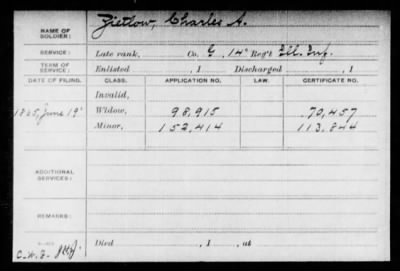 NAME OF SOLDIER: Zietlow, Charles A.
SERVICE: Late rank, Co. G, 14" Reg't Ill. Inf.
TERM OF SERVICE: Enlisted , 1 Discharged , 1
DATE OF FILING. CLASS. APPLICATION NO. LAW. CERTIFICATE NO.
Invalid,
1865, June 19" Widow, 98,915 70,457
Minor, 152,414 113,844
ADDITIONAL SERVICES:
REMARKS:
Died , 1 , at